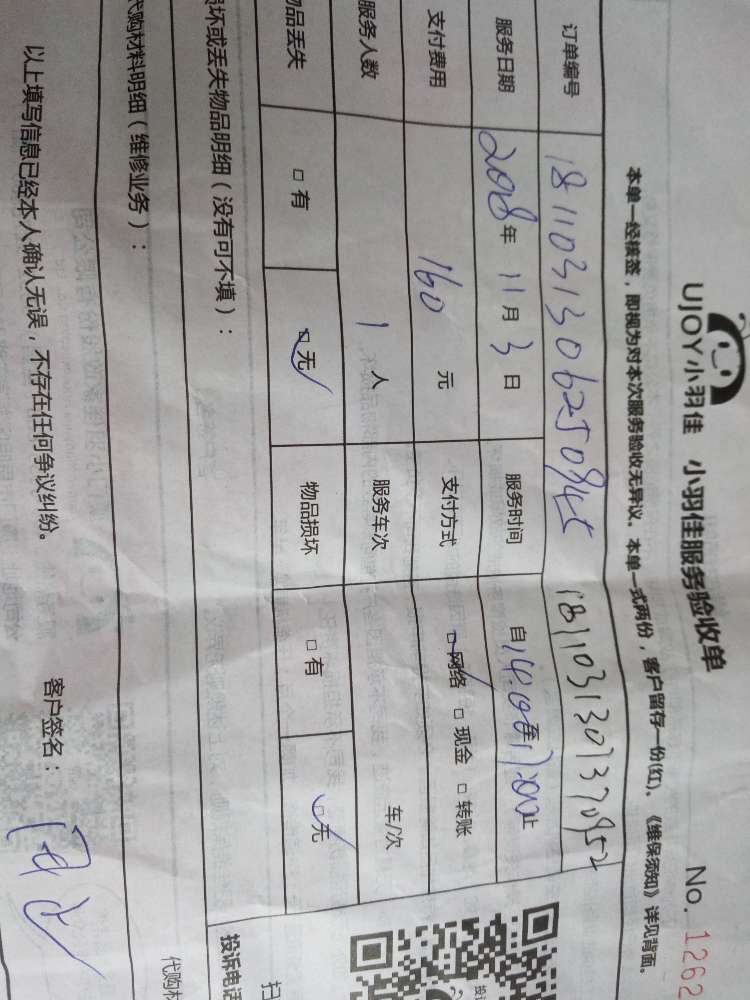 UJOY小羽佳 小羽佳服务验收单
No. 1262
本单一经核签，即视为对本次服务验收无异议。本单一式两份，客户留存一份(红)。《维保须知》详见背面。
订单编号 1811031306250845 1811031301370952
服务日期 2018年11月3日 服务时间 自14:00至17:00止
支付费用 160 元 支付方式 □网络 □现金 □转账
服务人数 1 人 服务车次 车/次
物品丢失 □有 □无 物品损坏 □有 □无
损坏或丢失物品明细（没有可不填）：
代购材料明细（维修业务）：
以上填写信息已经本人确认无误，不存在任何争议纠纷。 客户签名：
投诉电话
代购材